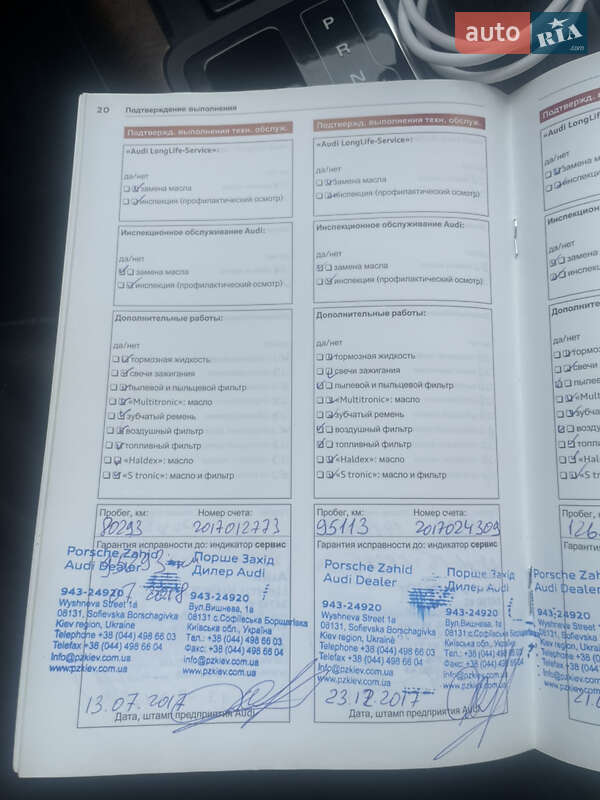 auto RIA .com
P
R
N
20 Подтверждение выполнения
Подтвержд. выполнения техн. обслуж.
«Audi LongLife-Service»:
да/нет
замена масла
инспекция (профилактический осмотр)
Инспекционное обслуживание Audi:
да/нет
замена масла
инспекция (профилактический осмотр)
Дополнительные работы:
да/нет
тормозная жидкость
свечи зажигания
пылевой и пыльцевой фильтр
«Multitronic»: масло
зубчатый ремень
воздушный фильтр
топливный фильтр
«Haldex»: масло
«S tronic»: масло и фильтр
Пробег, км: Номер счета:
80293 2017012773
Гарантия исправности до: индикатор сервис
Porsche Zahid
Audi Dealer
Порше Захід
Дилер Audi
943-24920
Wyshneva Street 1a
08131, Sofievska Borschagivka
Kiev region, Ukraine
Telephone +38 (044) 498 66 03
Telefax +38 (044) 498 66 04
Info@pzkiev.com.ua
www.pzkiev.com.ua
943-24920
Вул.Вишнева, 1а
08131 с.Софіївська Борщагівка
Київська обл., Україна
Тел.: +38 (044) 498 66 03
Факс: +38 (044) 498 66 04
Info@pzkiev.com.ua
www.pzkiev.com.ua
13.07.2017
Дата, штамп предприятия Audi
Подтвержд. выполнения техн. обслуж.
«Audi LongLife-Service»:
да/нет
замена масла
инспекция (профилактический осмотр)
Инспекционное обслуживание Audi:
да/нет
замена масла
инспекция (профилактический осмотр)
Дополнительные работы:
да/нет
тормозная жидкость
свечи зажигания
пылевой и пыльцевой фильтр
«Multitronic»: масло
зубчатый ремень
воздушный фильтр
топливный фильтр
«Haldex»: масло
«S tronic»: масло и фильтр
Пробег, км: Номер счета:
95113 2017024309
Гарантия исправности до: индикатор сервис
Porsche Zahid
Audi Dealer
Порше Захід
Дилер Audi
943-24920
Wyshneva Street 1a
08131, Sofievska Borschagivka
Kiev region, Ukraine
Telephone +38 (044) 498 66 03
Telefax +38 (044) 498 66 04
Info@pzkiev.com.ua
www.pzkiev.com.ua
943-24920
Вул.Вишнева, 1а
08131 с.Софіївська Борщагівка
Київська обл., Україна
Тел.: +38 (044) 498 66 03
Факс: +38 (044) 498 66 04
Info@pzkiev.com.ua
www.pzkiev.com.ua
23.12.2017
Дата, штамп предприятия Audi
Подтвержд.
«Audi LongLife
да/нет
замена
инспекция
Инспекционное
да/нет
замена
инспекция
Дополнительны
да/нет
тормозн
свечи з
пылево
«Multitr
зубчаты
воздуш
топлив
«Haldex
«S tron
Пробег, км:
126
Гарантия исправ
Porsche Zahid
Audi Dealer
943-24920
Wyshneva Street
08131, Sofievska
Kiev region, Ukraine
Telephone +38
Telefax +38 (04
Info@pzkiev.com
www.pzkiev.com
21.0
Дата